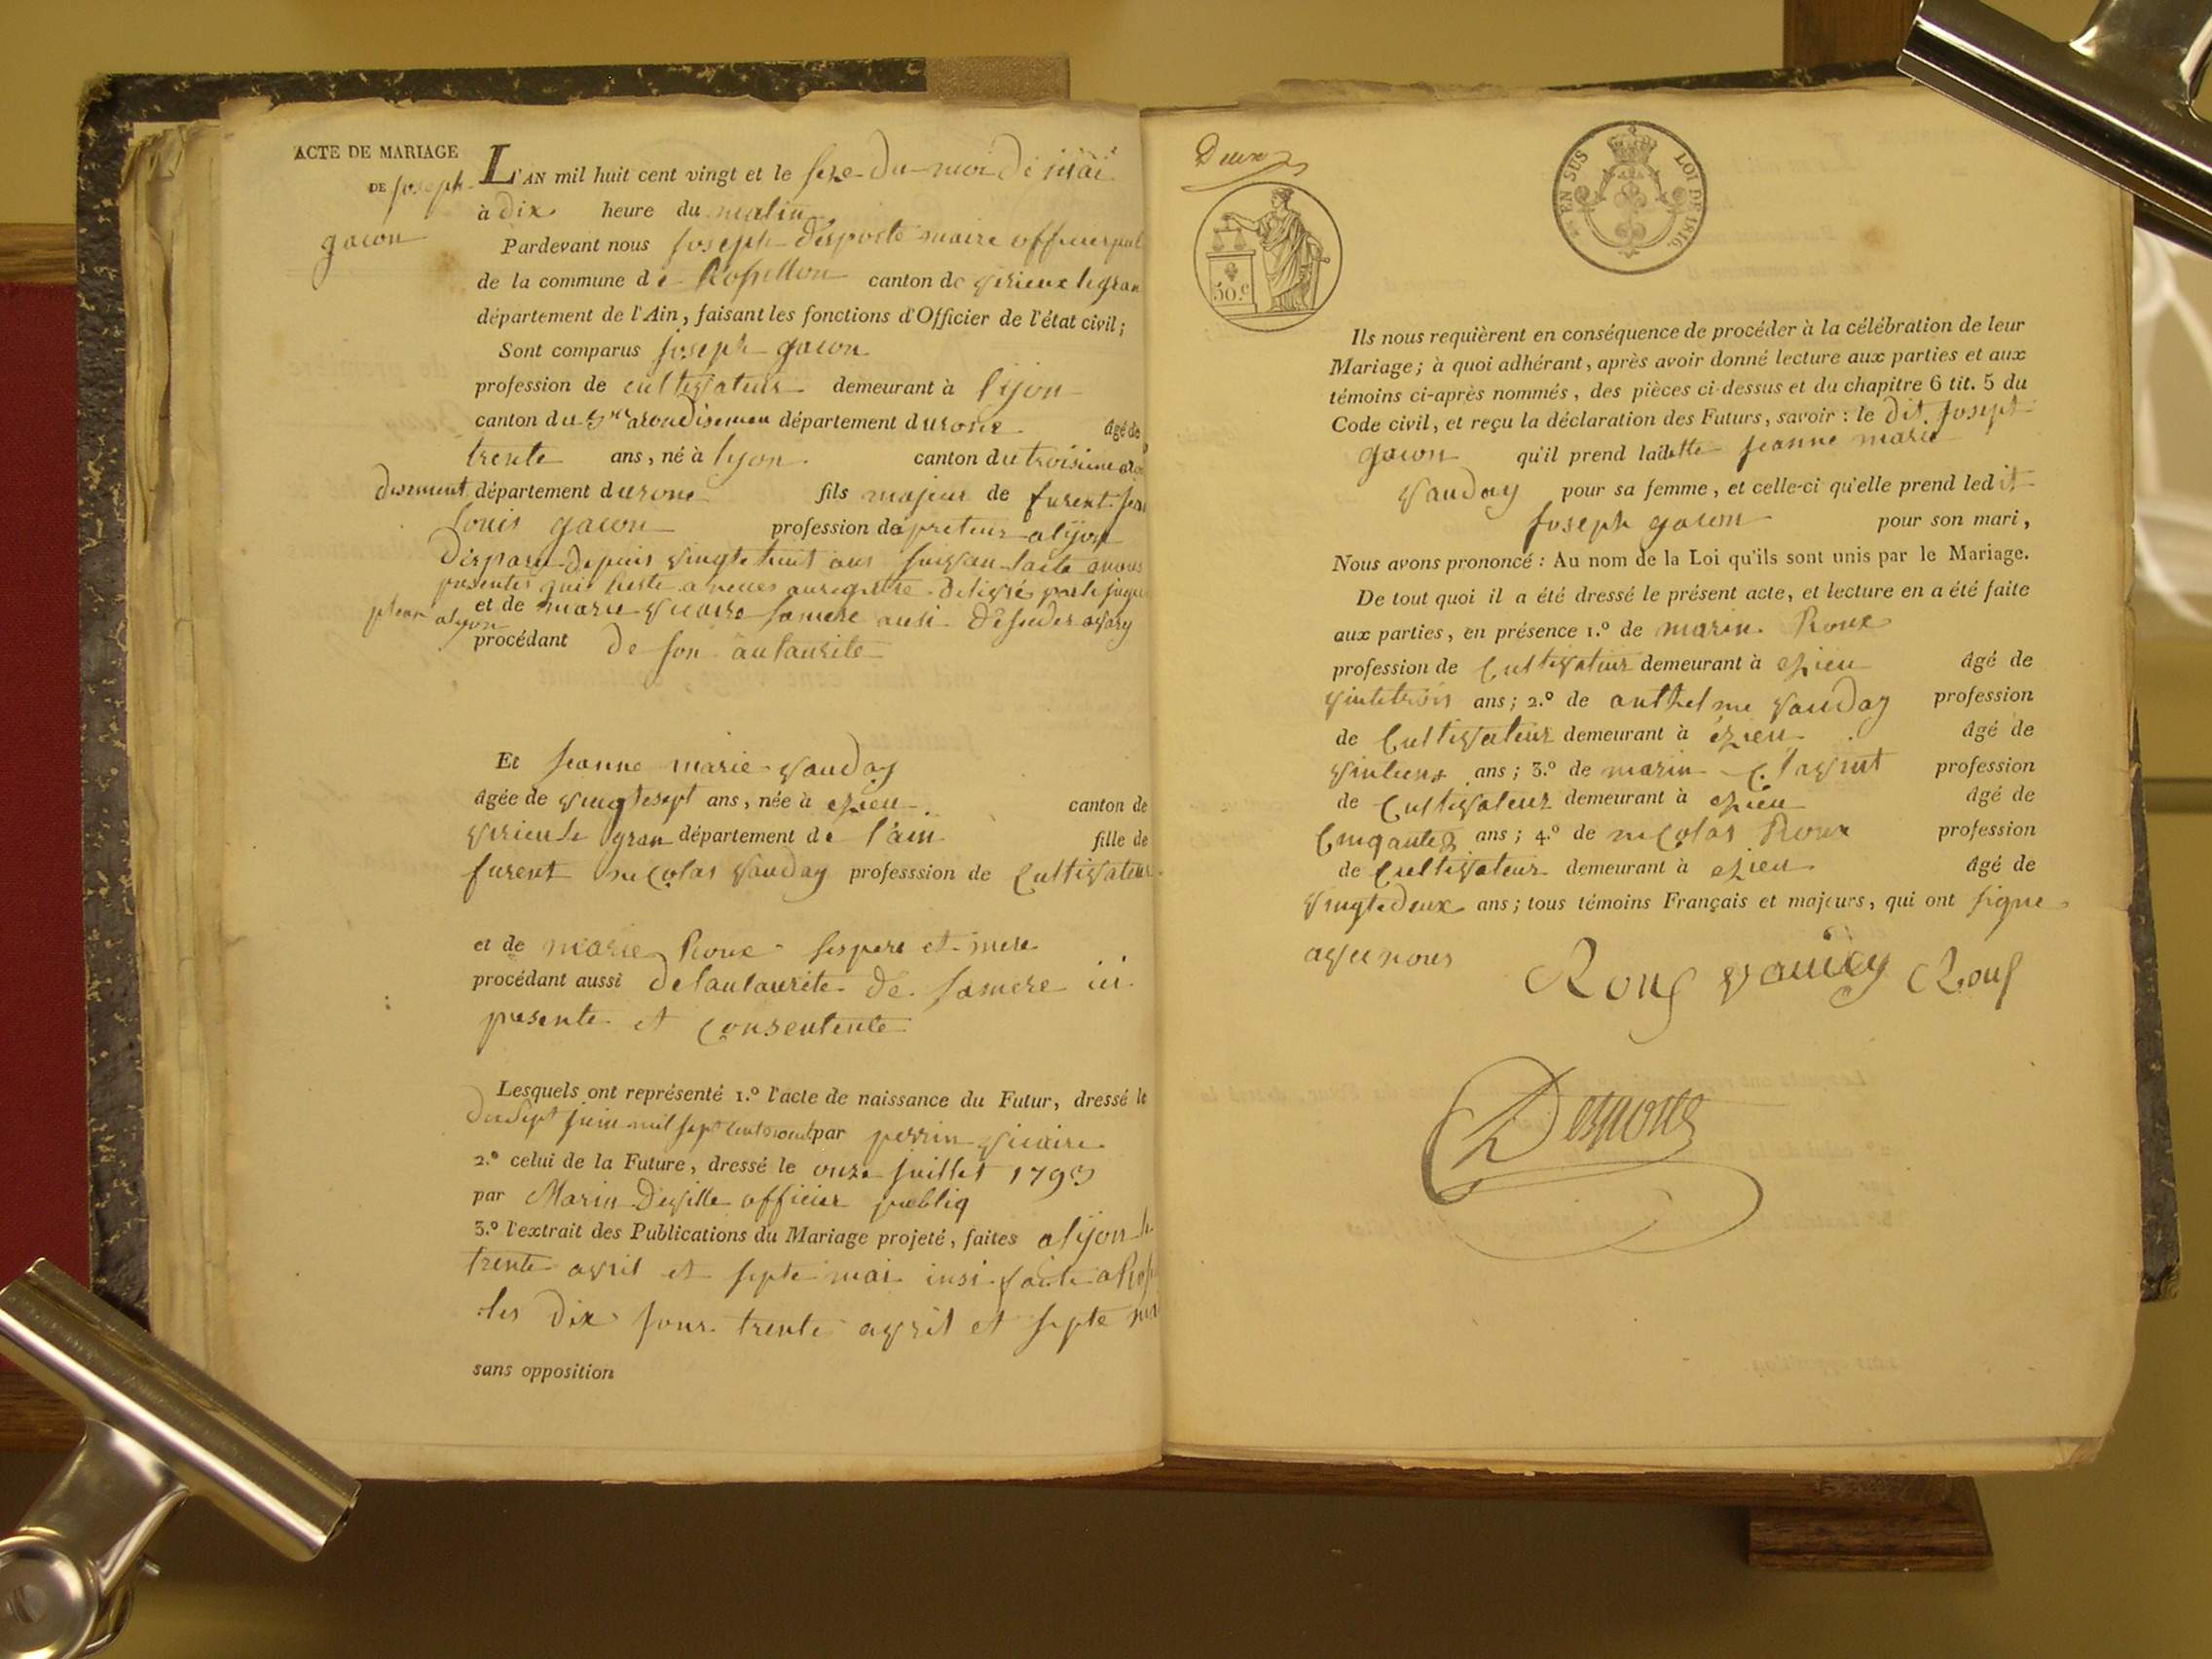 ACTE DE MARIAGE
DE joseph
gacon
L'AN mil huit cent vingt et le seze du moi de mai
à dix heure du matin
Pardevant nous joseph desporte maire officier pub
de la commune de Rossillon canton de virieux le gran
département de l'Ain, faisant les fonctions d'Officier de l'état civil;
Sont comparus joseph gacon
profession de cultivateur demeurant à lyon
canton du 3me arondisemen département durone âgé de
trente ans, né à lyon canton du troisieme aro
disement département durone fils majeur de furent jean
Louis gacon profession de apreteur a lyon
disparu depuis vingtehuit ans suivan lacte a nous
presenter qui reste anexes au registre delivré par le juge
et de marie vicaire samere ausi desedes
a lyon
procédant de son autaurite
Et jeanne marie vauday
âgée de vingtesept ans, née à ezieu canton de
virieu le gran département de l'ain fille de
furent nicolas vauday professsion de cultivateur
et de marie Roux ses pere et mere
procédant aussi de lautaurite de samere ici
presente et consentente
Lesquels ont représenté 1.º l'acte de naissance du Futur, dressé le
dixsept juin mil sept cent par perrin vicaire
2.º celui de la Future, dressé le onze juillet 1793
par Marin Deville officier publiq
3.º l'extrait des Publications du Mariage projeté, faites a lyon le
trente avril et septe mai insi faite a Ross
les dix jour trente avril et septe mai
sans opposition
Deux
50.c
EN SUS LOI DE 1816.
Ils nous requièrent en conséquence de procéder à la célébration de leur
Mariage; à quoi adhérant, après avoir donné lecture aux parties et aux
témoins ci-après nommés, des pièces ci-dessus et du chapitre 6 tit. 5 du
Code civil, et reçu la déclaration des Futurs, savoir: le dit joseph
gacon qu'il prend laditte jeanne marie
vauday pour sa femme, et celle-ci qu'elle prend ledit
joseph gacon pour son mari,
Nous avons prononcé: Au nom de la Loi qu'ils sont unis par le Mariage.
De tout quoi il a été dressé le présent acte, et lecture en a été faite
aux parties, en présence 1.º de marin Roux
profession de cultivateur demeurant à ezieu âgé de
vintetrois ans; 2.º de anthelme vauday profession
de cultivateur demeurant à ézieu âgé de
ans; 3.º de marin profession
de cultivateur demeurant à ezieu âgé de
ans; 4.º de nicolas Roux profession
de cultivateur demeurant à ezieu âgé de
vingtedeux ans; tous témoins Français et majeurs, qui ont signe
avec nous
Roux vauday Roux
Desporte